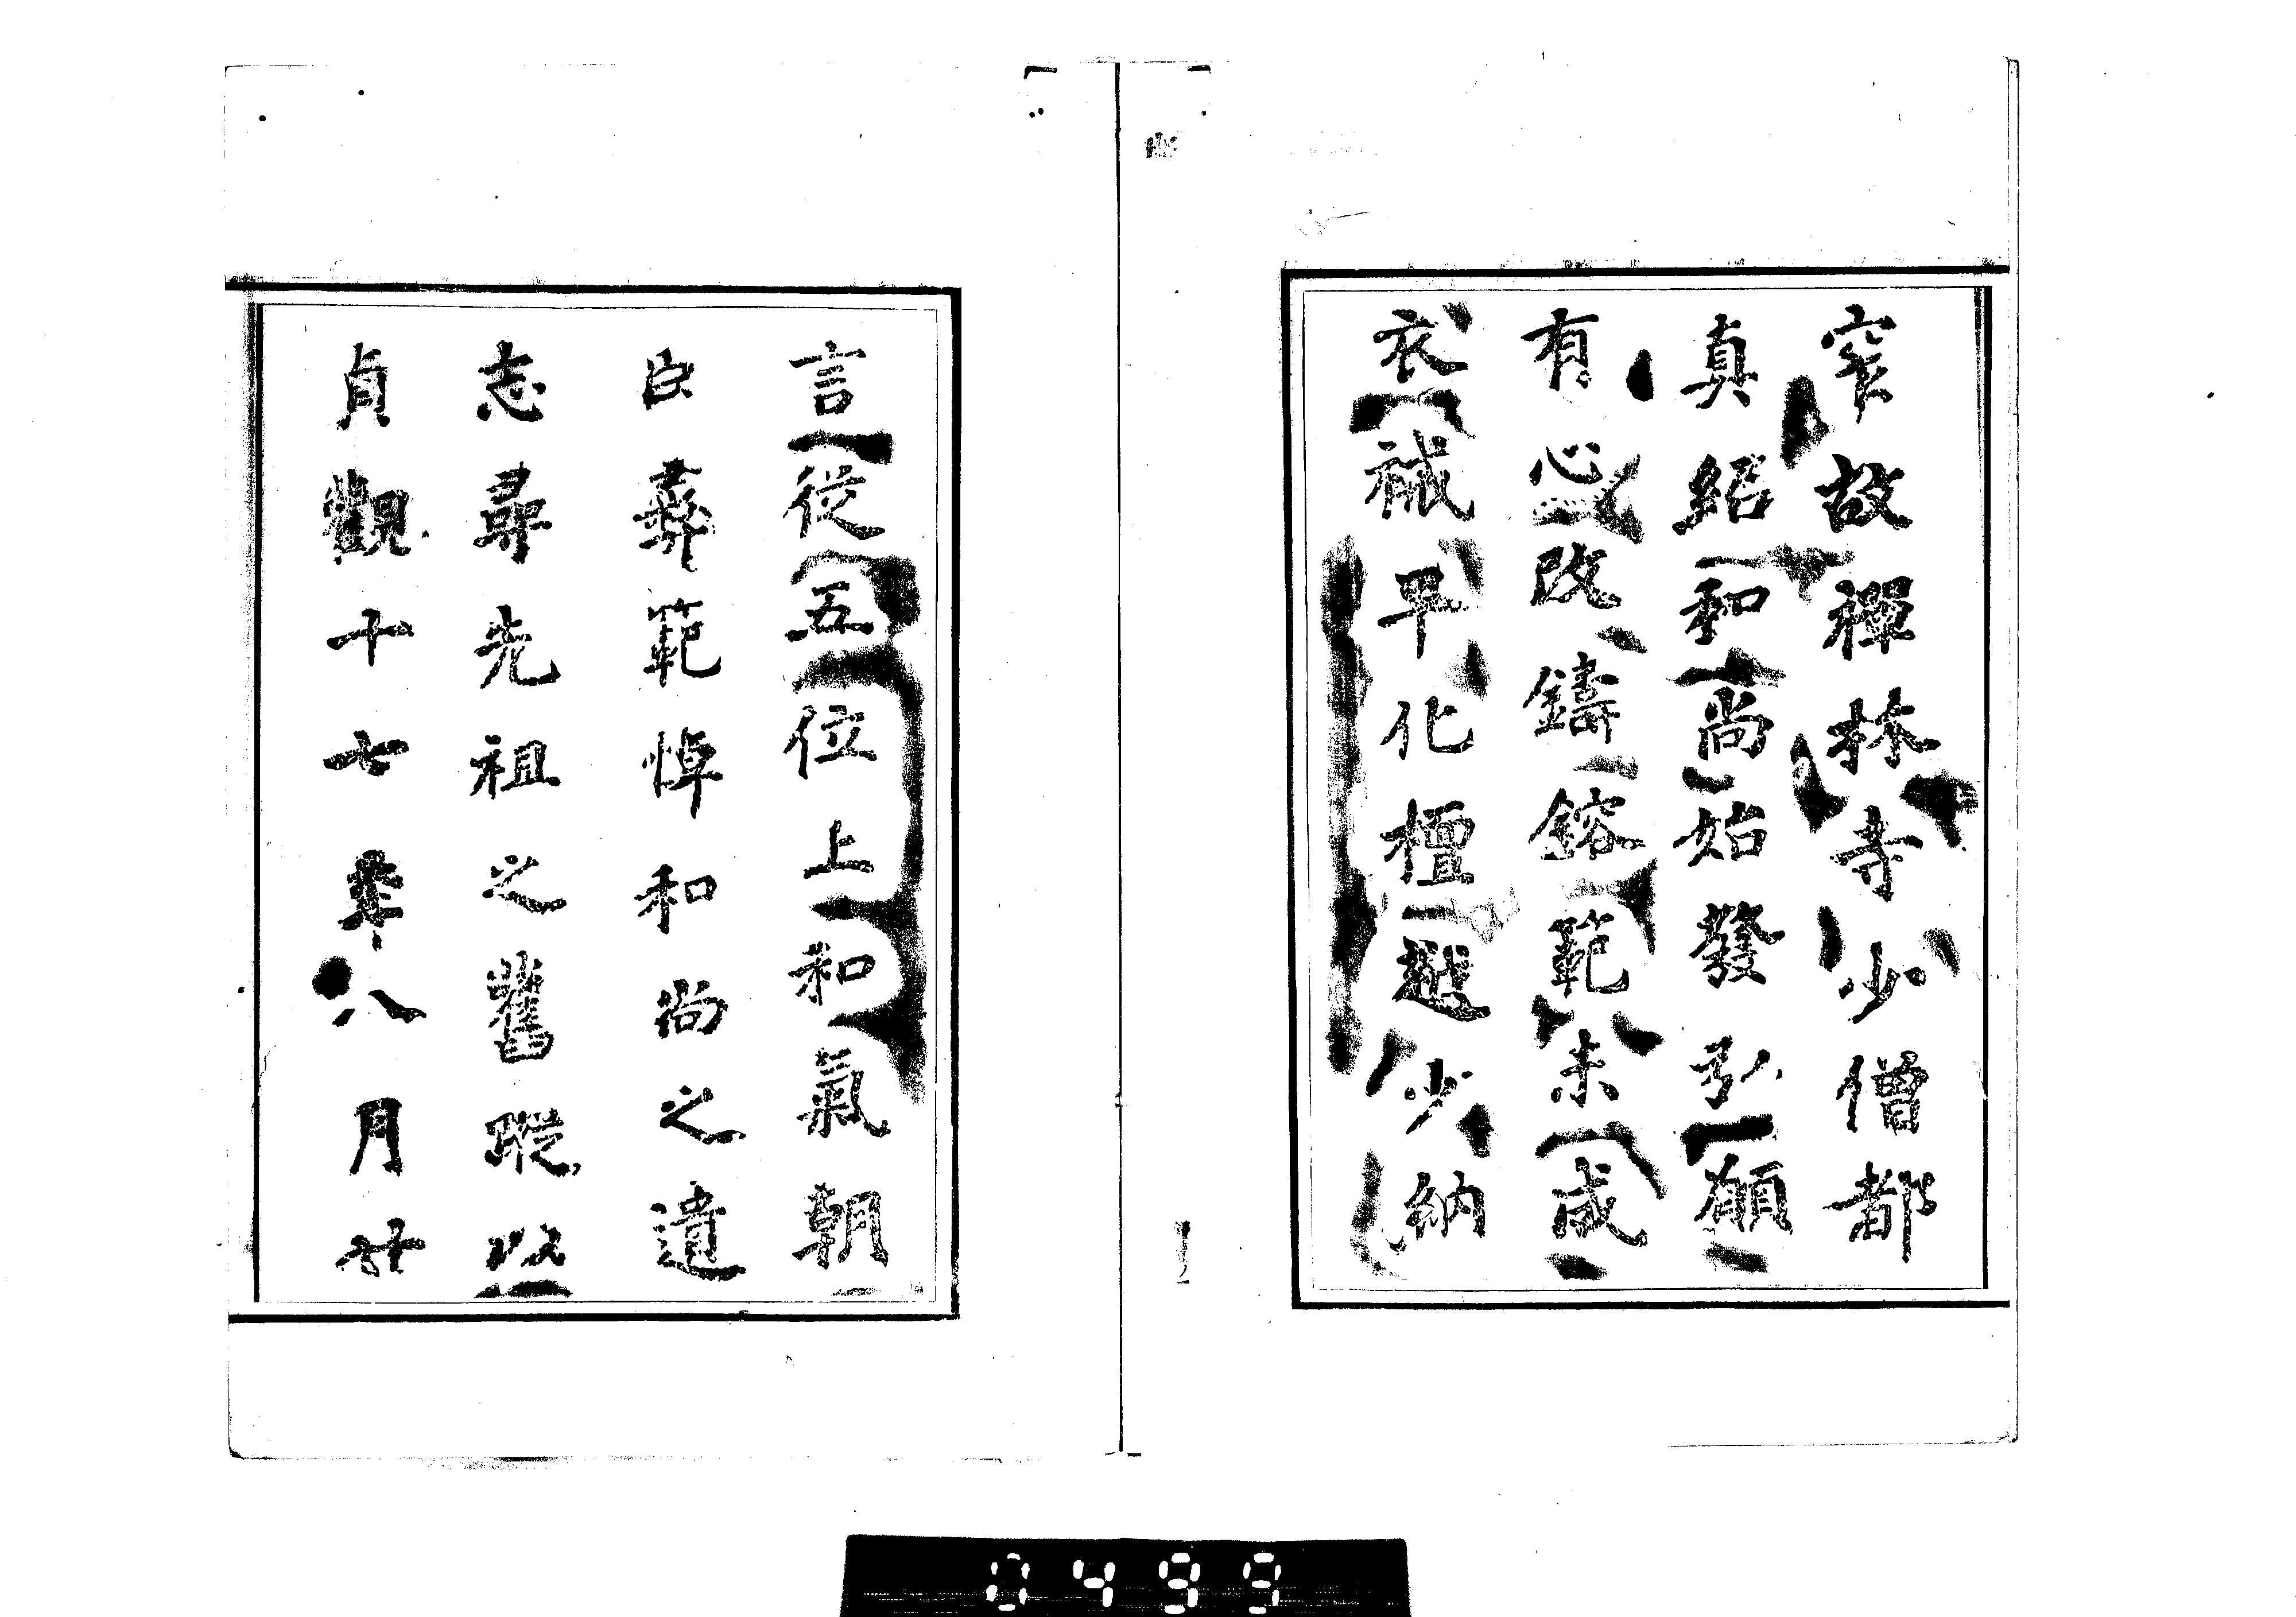 窄故禪林寺少僧都
真紹和尚始發弘願
有心改鑄鎔範未成
衣祴早化檀越少納
言從五位上和氣朝
臣彝範悼和尚之遺
志尋先祖之舊蹤以
貞觀十七年八月廿
0499